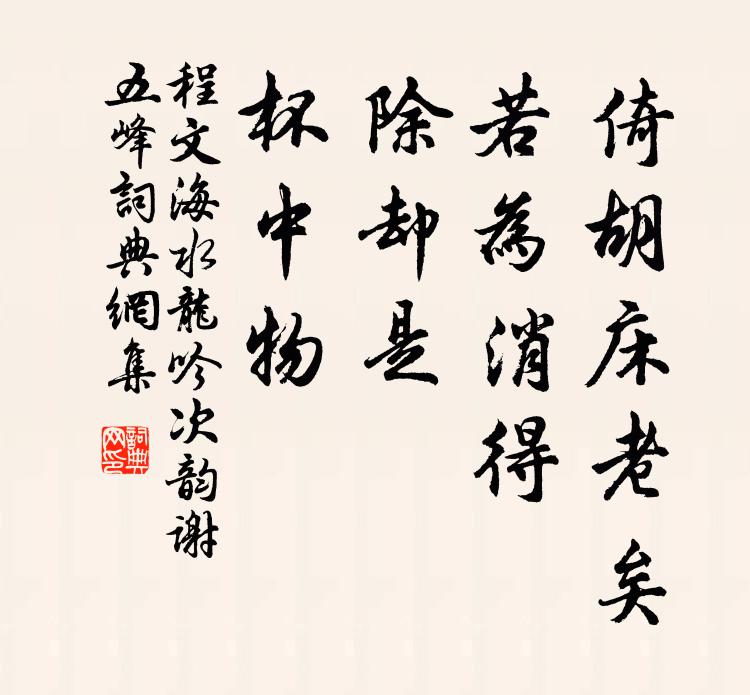 倚胡床老矣
若為消得
除却是
杯中物
程文海水龍吟次韵謝
五峰詞典網集
詞典網印